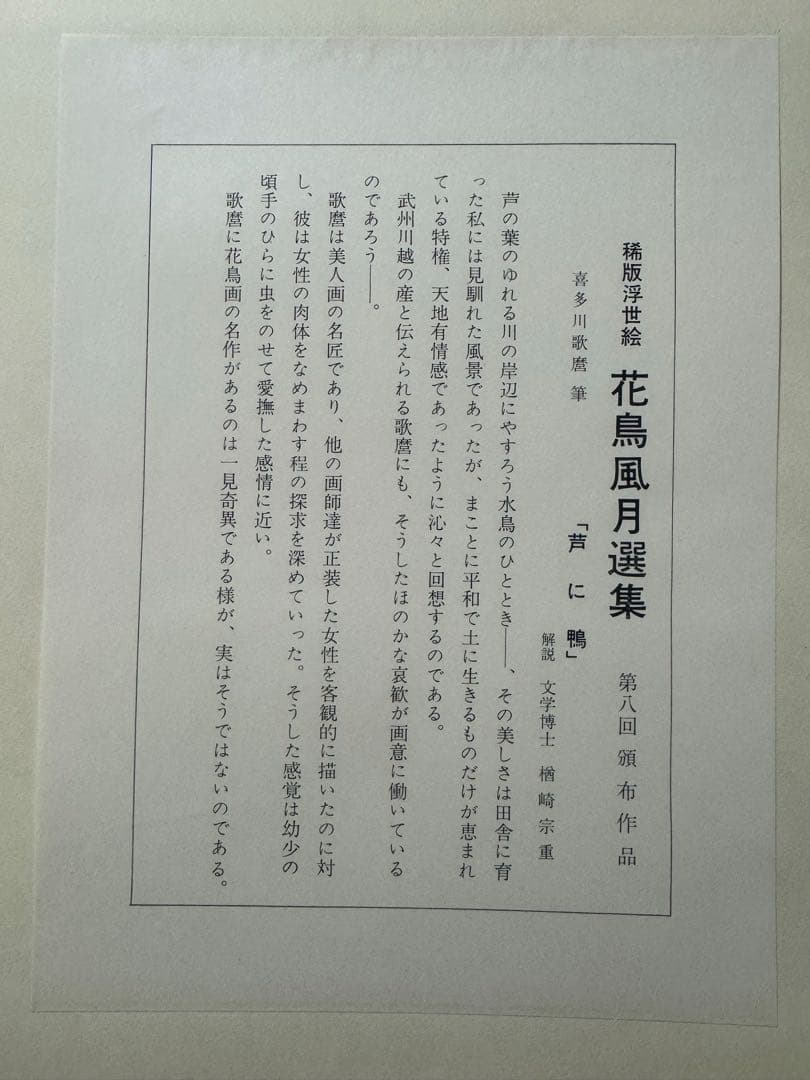 稀版浮世絵 花鳥風月選集 第八回頒布作品
喜多川歌麿 筆
「芦に鴨」
解説 文学博士 楢崎宗重
芦の葉のゆれる川の岸辺にやすろう水鳥のひととき――、その美しさは田舎に育
った私には見馴れた風景であったが、まことに平和で土に生きるものだけが恵まれ
ている特権、天地有情感であったように沁々と回想するのである。
武州川越の産と伝えられる歌麿にも、そうしたほのかな哀歓が画意に働いている
のであろう――。
歌麿は美人画の名匠であり、他の画師達が正装した女性を客観的に描いたのに対
し、彼は女性の肉体をなめまわす程の探求を深めていった。そうした感覚は幼少の
頃手のひらに虫をのせて愛撫した感情に近い。
歌麿に花鳥画の名作があるのは一見奇異である様が、実はそうではないのである。